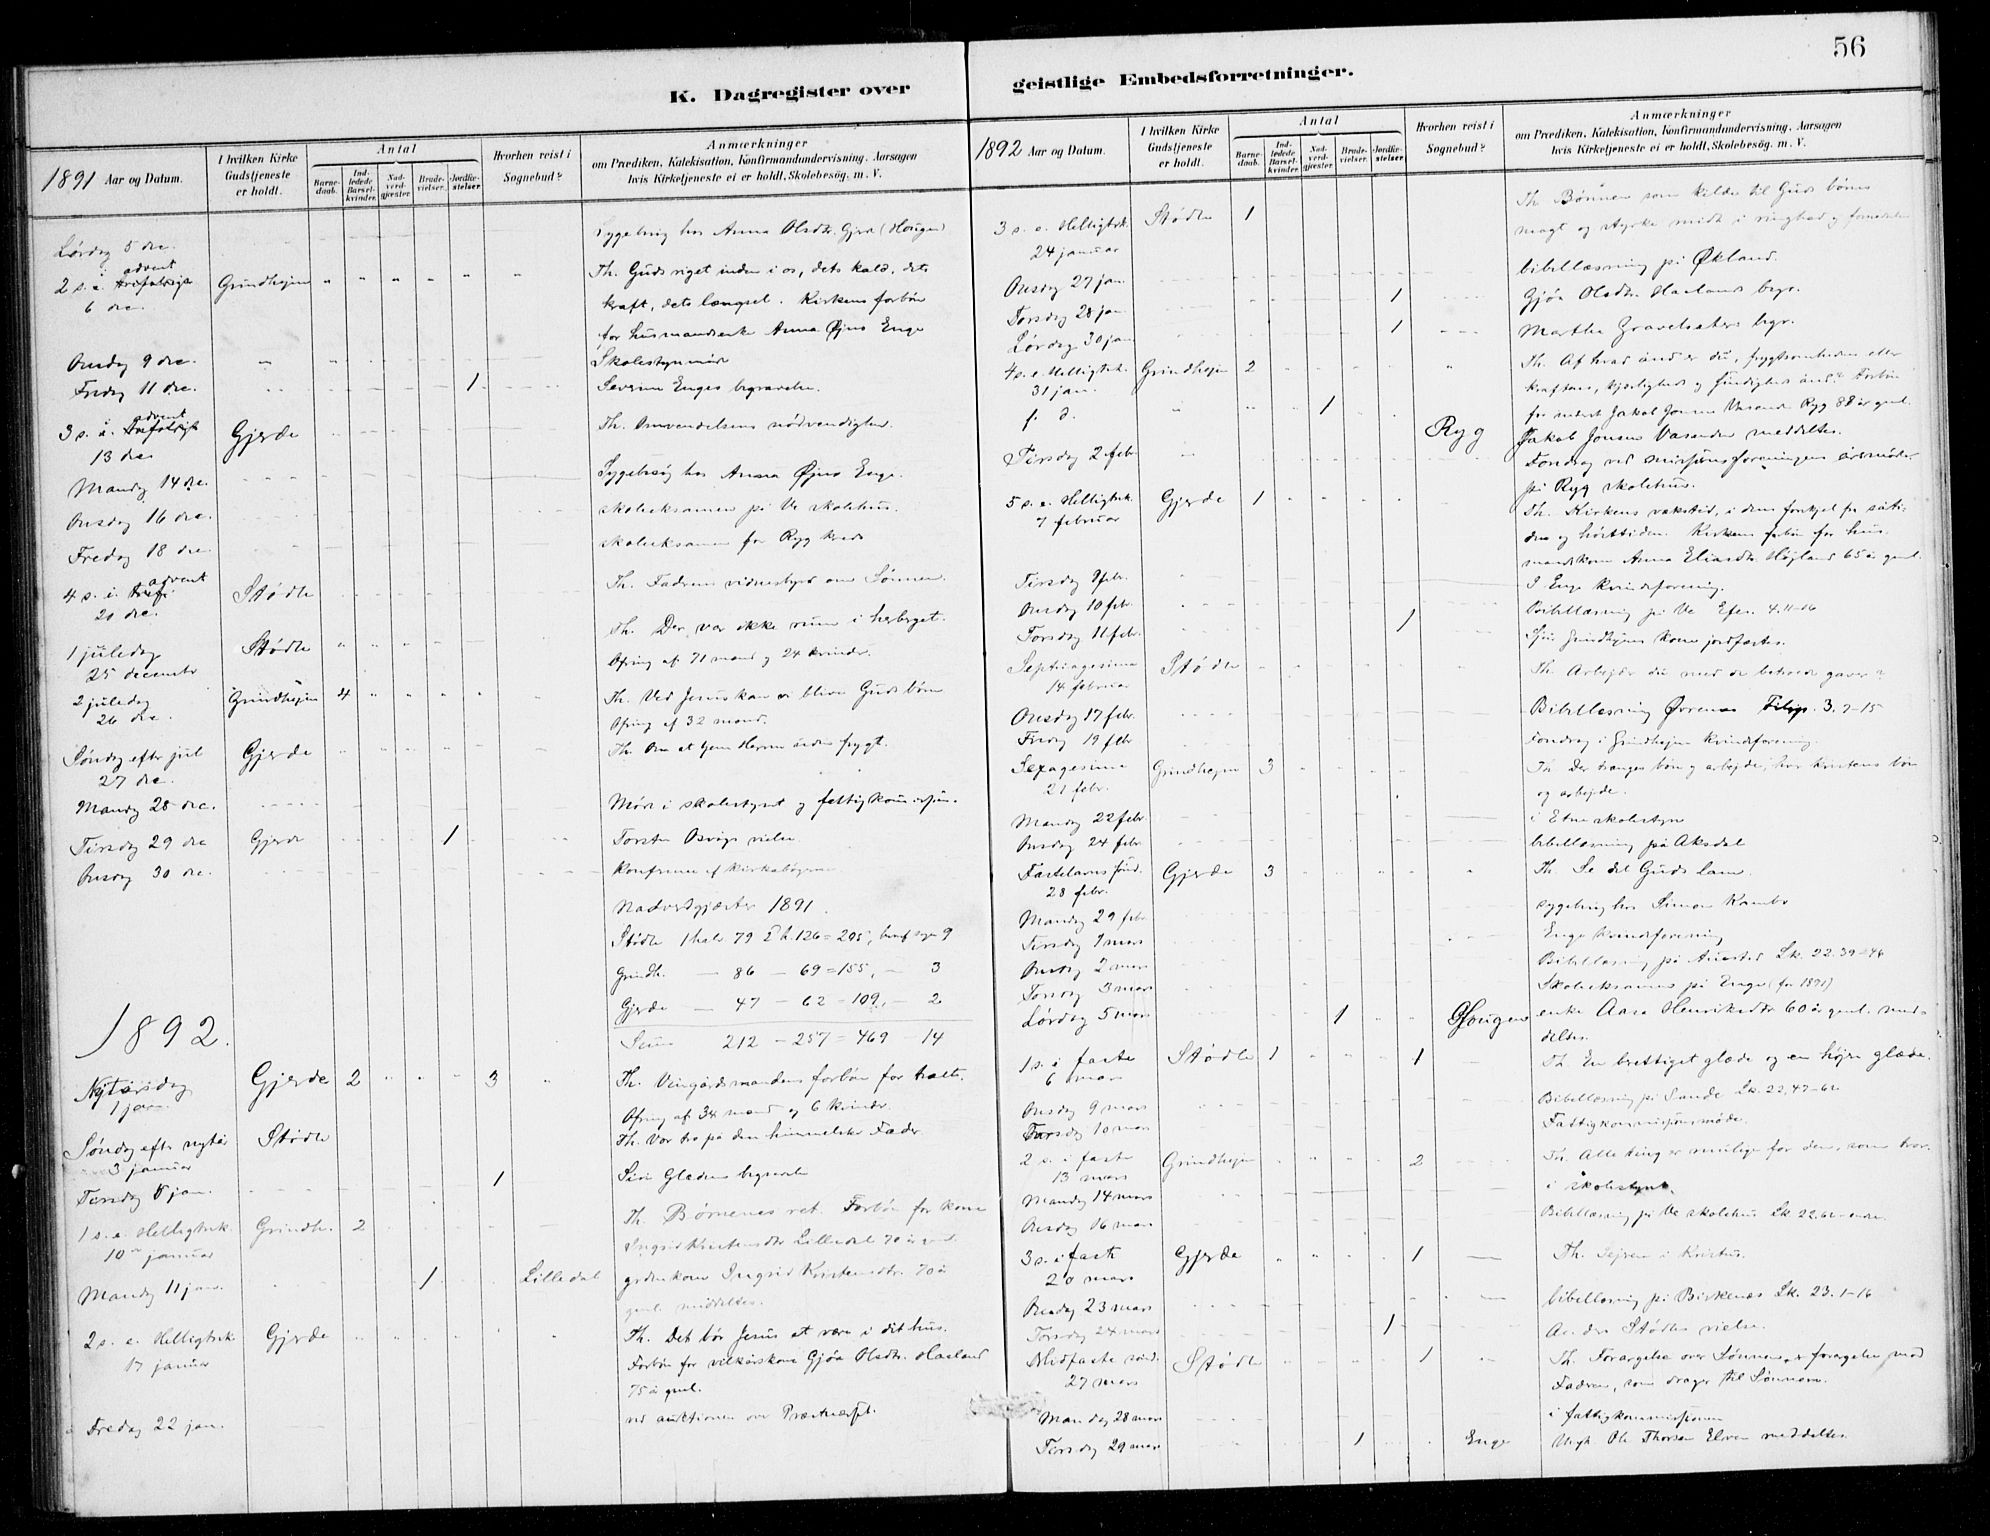 56
K. Dagregister over
1891 Aar og Datum.
I hvilken Kirke Gudstjeneste er holdt.
Antal
Barnedaab.
Indledede Barselkvinder.
Nadverdgjester
Brudevielser.
Jordfæstelser
Hvorhen reist i Sognebud?
Anmærkninger
om Prædiken, Katekisation, Konfirmandundervisning, Aarsagen
hvis Kirketjeneste ei er holdt, Skolebesøg. m. V.
Lørdag 5 dec. Sygebesøg hos Anna Olsdtr. Gjerde (Haugen)
2 s. i advent Grindhejm Th. Guds riget inden i os, dets kald, dets
6 dec. kraft, dets længsel. Kirkens forbøn
for husmandsenke Anna Øjus Enge
Onsdag 9 dec. Skolestyremøde
Fredag 11 dec. 1 Severine Enges begravelse.
3 s. i advent Gjerde Th. Omvendelsens nødvendighed.
13 dec.
Mandag 14 dec. Sygebesøg hos Anna Øjus Enge.
Onsdag 16 dec. skoleeksamen på Ve skolehus.
Fredag 18 dec. skoleeksamen for Ryg kreds
4 s. i advent Stødle Th. Fadrens vidnesbyrd om Sønnen.
20 dec.
1 juledag Stødle Th. Der var ikke rum i herberget.
25 december Ofring af 71 mænd og 24 kvinder.
2 juledag Grindhejm 4 Th. Ved Jesus kan vi blive Guds børn
26 dec. Ofring af 32 mænd.
Søndag efter jul Gjerde Th. Om at tjene Herren uden frygt.
27 dec.
Mandag 28 dec. Møde i skolestyret og fattigkommissjon.
Tirsdag 29 dec Gjerde 1 Torsten Osvågs vielse
Onsdag 30 dec. Konferense af kirkebøgerne
Nadverdgjæster 1891.
Stødle 1 halv 79 2 h. 126 = 205, 9
Grindh. — 86 — 69 = 155, — 3
Gjerde — 47 — 62 = 109, — 2
Sum 212 — 257 = 469 — 14
1892.
Nytårsdag Gjerde 2 3 Th. Vingårdsmandens forbøn for træet.
1 jan. Ofring af 34 mænd og 6 kvinder.
Søndag efter nytår Stødle Th. Vor tro på den himmelske Fader
3 januar
Tirsdag 5 jan. 1 Siri Gladens begravelse
1 s. e. Helligtrek. Grindh. 2 Th. Børnenes ret. Forbøn for kone
10 januar Ingrid Kristensdtr Lilledal 70 år gml.
Mandag 11 jan. 1 Lilledal gårdmkone Ingrid Kristensdtr. 70 år
gml. meddeltes.
2 s. e. Helligtrek Gjerde Th. Det bør Jesus at være i dit hus.
17 januar Forbøn for vilkårskone Gjøa Olsdtr. Haaland
75 år gml.
Fredag 22 jan. ved auktionen over Præstneset.
geistlige Embedsforretninger.
1892 Aar og Datum.
I hvilken Kirke Gudstjeneste er holdt.
Antal
Barnedaab.
Indledede Barselkvinder.
Nadverdgjester
Brudevielser.
Jordfæstelser
Hvorhen reist i Sognebud?
Anmærkninger
om Prædiken, Katekisation, Konfirmandundervisning, Aarsagen
hvis Kirketjeneste ei er holdt, Skolebesøg. m. V.
3 s. e. Helligtrek. Stødle 1 Th. Bønnen som kilde til Guds børns
24 januar magt og styrke midt i ringhed og fornedrelse
Onsdag 27 jan bibellæsning på Økland.
Torsdag 28 jan 1 Gjøa Olsdtr. Haaland begr.
Lørdag 30 jan 1 Martha Gravelsæter begr.
4 s. e. Helligtrek. Grindhejm 2 Th. Af hvad ånd er du, frygtsomheden eller
31 jan. kraftens, kjærligheds og sindigheds ånd? Forbøn
s. d. 1 Ryg for Jakob Jonsen Ryg 88 år gml.
Jakob Jonsen meddeltes.
Tirsdag 2 febr. Foredrag ved missjonsforeningens årsmøde
på Ryg skolehus.
5 s. e. Helligtrek. Gjerde 1 Th. Kirkens vækstid, i dens forskjel fra såti-
7 februar den og høsttiden. Kirkens forbøn for hus-
mandskone Anna Eliasdtr Højland 65 år gml.
Tirsdag 9 febr. I Enge kvindforening.
Onsdag 10 febr. Bibellæsning på Ve Efes. 4. 11-16
Torsdag 11 febr. 1 Grindhejms kone jordfæstes.
Septuagesima Stødle Th. Arbejder du med de betroede gaver?
14 februar
Onsdag 17 febr. Bibellæsning Øvrenæs Filip. 3. 7-15
Fredag 19 febr Foredrag i Grindhejm kvindforening.
Sexagesima Grindhejm 3 Th. Der trænges bøn og arbejde, hør kristens bøn
21 febr. og arbejde.
Mandag 22 febr. i Etne skolestyre
Onsdag 24 febr. bibellæsning på Aksdal
Fastelavns sønd. Gjerde 3 Th. Se det Guds lam.
28 febr.
Mandag 29 febr sygebesøg hos Simon Kambo
Tirsdag 1 mars Enge kvindforening
Onsdag 2 mars Bibellæsning på Lk. 22. 39-46
Torsdag 3 mars Skoleeksamen på Enge (for 1891)
Lørdag 5 mars 1 Haugen enke Aasa Henriksdtr 60 år gml. med-
deltes.
1 s. i faste Stødle 1 1 Th. En berettiget glæde og en højere glæde.
6 mars
Onsdag 9 mars Bibellæsning på Sande Lk. 22, 47-62
Torsdag 10 mars Fattigkommissjonsmøde.
2 s. i faste Grindhejm 2 Th. Alle ting er mulige for den, som tror.
13 mars
Mandag 14 mars i skolestyret.
Onsdag 16 mars Bibellæsning på Ve skolehus Lk. 22. 62-enden.
3 s. i faste Gjerde 1 Th. Sejren i Kristus.
20 mars
Onsdag 23 mars bibellæsning på Birkenæs Lk. 23. 1-16
Torsdag 24 mars 1 Stødles vielse.
Midfaste sønd. Stødle 1 Th. Forargelse over Sønnen er forargelse mod
27 mars Fadren, som drager til Sønnen.
Mandag 28 mars i fattigkommissjonen
Tirsdag 29 mars 1 Enge Ungk. Ole Thorsen Elven meddeltes.